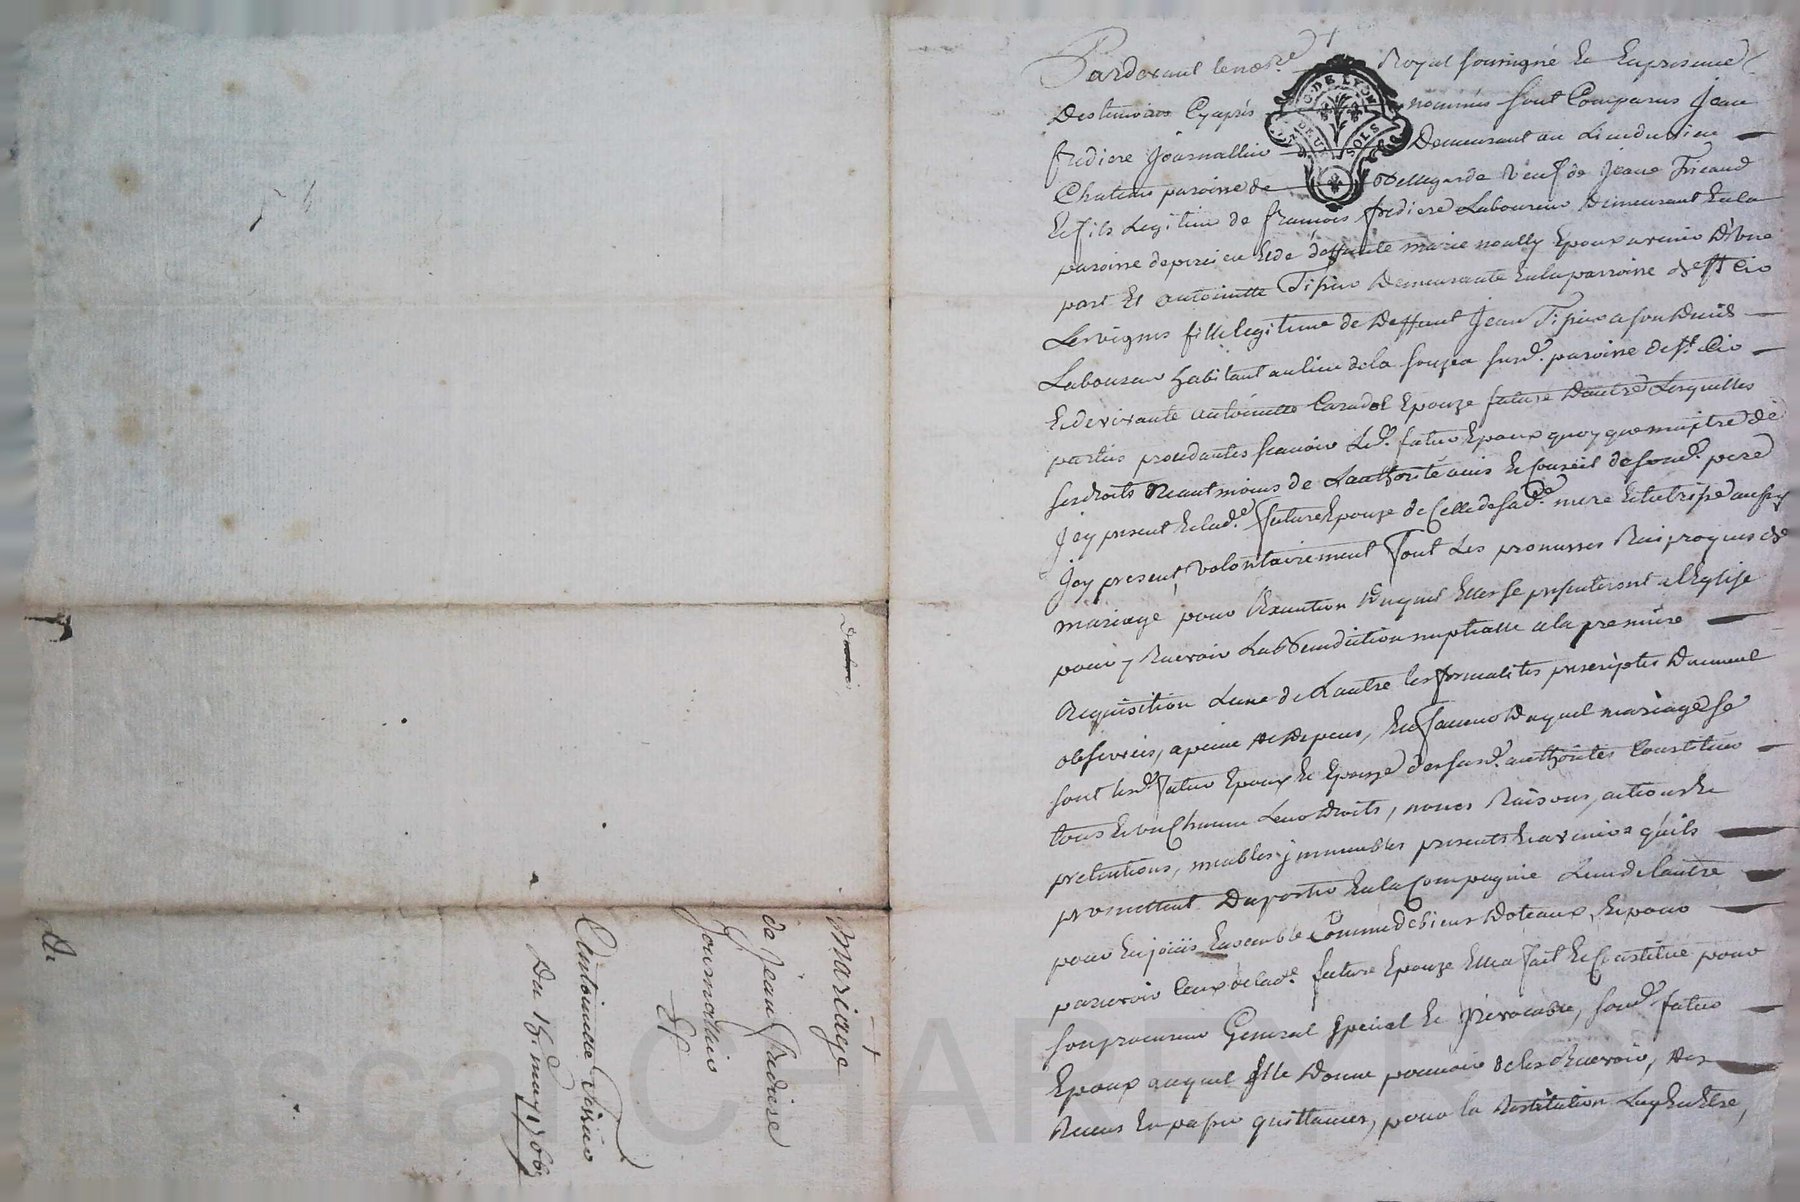 Pardevant le no.re Royal soussigné et en presence
Des temoins Cy apres nommés sont Comparus Jean
fredière Journallier Demeurant au Lieu du vieu
Chateau paroisse de Bellegarde veuf de Jeane Fricaud
et fils Legitime de francois fredière Laboureur Demeurant en la
paroisse de et de deffunte marie noally Epoux avenir D'une
part Et antoinette Tissier Demeurante en la parroisse de st Cir
Les vignes fille legitime de Deffunt Jean Tissier a son Decès
Laboureur habitant au lieu de la susd.e paroisse de st. Cir
et de vivante antoinette Caradot Epouze future D'autre Lesquelles
parties procedantes scavoir Led.t futur Epoux quoy que maitre de
ses droits Neantmoins de L'authorité avis et Conseil de sond.t pere
Jcy present et lad.e future Epouze de Celle de sad.e mere et tutrice aussy
Jcy presente, volontairement font Les promesses Reciproques de
mariage pour Execution Duquel Elles se presenteront a l'Eglise
pour y Recevoir La Benediction nuptialle a la premiere
Requisition L'une de L'autre les formalités prescriptes Dument
observées, a peine de Depens, En faveur Duquel mariage se
sont lesd.s futur Epoux et Epouze de susd.es authorités Constitués
tous et un Chacun Leurs Droits, noms Raisons, actions et
pretentions, meubles, jmmeubles presents et avenirs qu'ils
promettent D'aporter En la Compagnie L'un de l'autre
pour En jouir Ensemble Comme de biens Doteaux, Et pour
percevoir Ceux de lad.e future Epouze Elle a fait et Constitué pour
son procureur General special et Irrevocable, sond.t futur
Epoux auquel Elle Donne pouvoir de les Recevoir, Des
Recus En passer quittances, pour la Restitution Luy En Etre,
mariage
de jean fredière
Journallier
Et
Antoinette Tissier
Du 15 may 1766